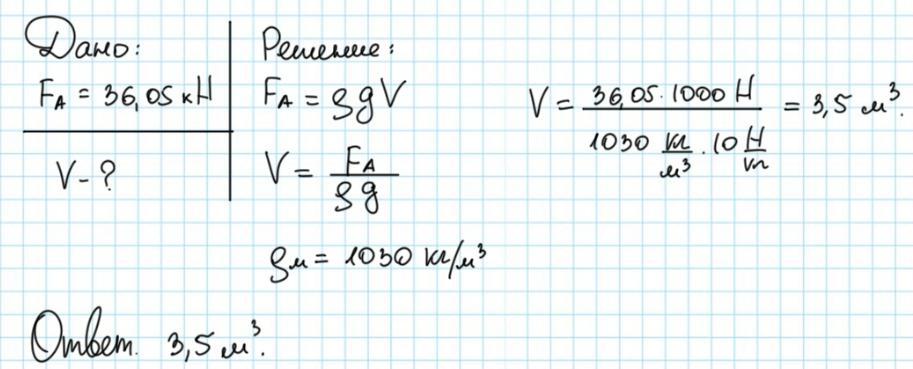 Дано:
F_A = 36,05 кН
V - ?
Решение:
F_A = ρgV
V = F_A / ρg
ρм = 1030 кг/м³
V = 36,05 · 1000 Н / 1030 кг/м³ · 10 Н/кг = 3,5 м³.
Ответ. 3,5 м³.